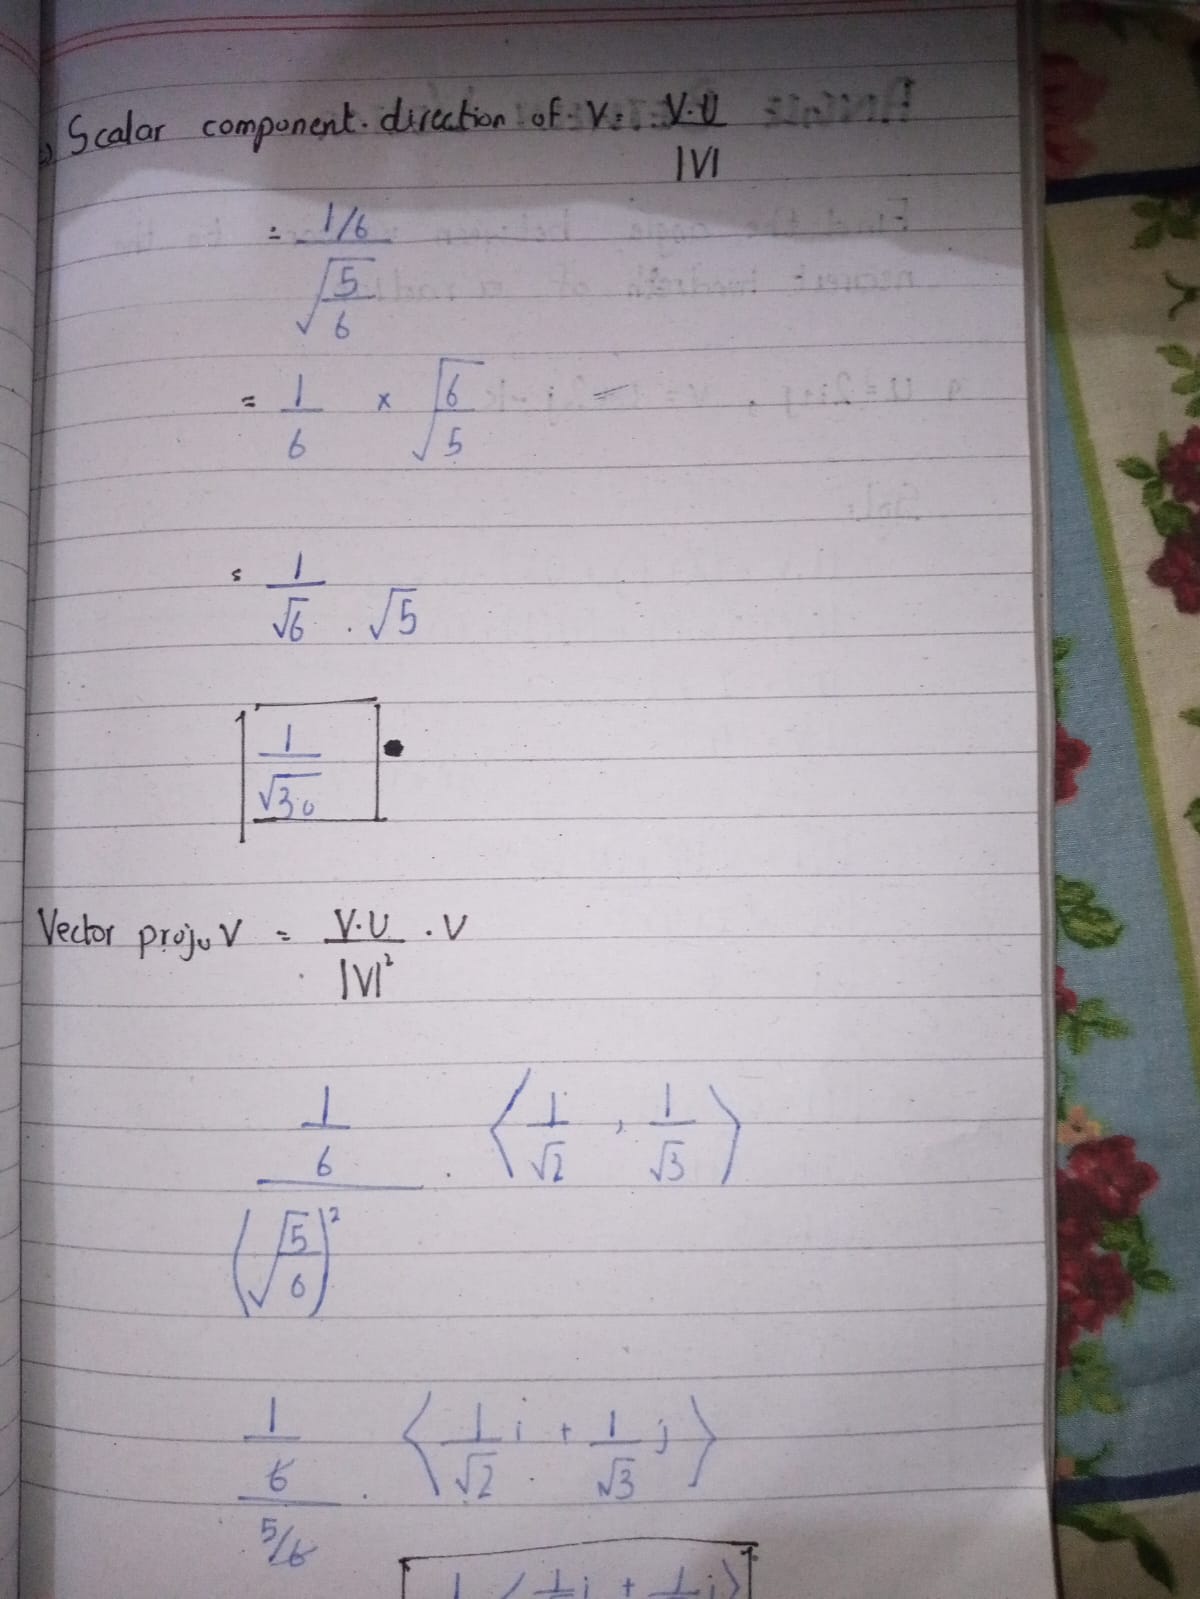 Scalar component. direction of V = V.U / |V|
= 1/6 / √5/6
= 1/6 × √6/5
= 1 / √6 . √5
1 / √30
Vector projᵤ V = V.U / |V|² . V
1/6 / (√5/6)² . ⟨1/√2 , 1/√3⟩
1/6 / 5/6 . ⟨1/√2 i + 1/√3 j⟩